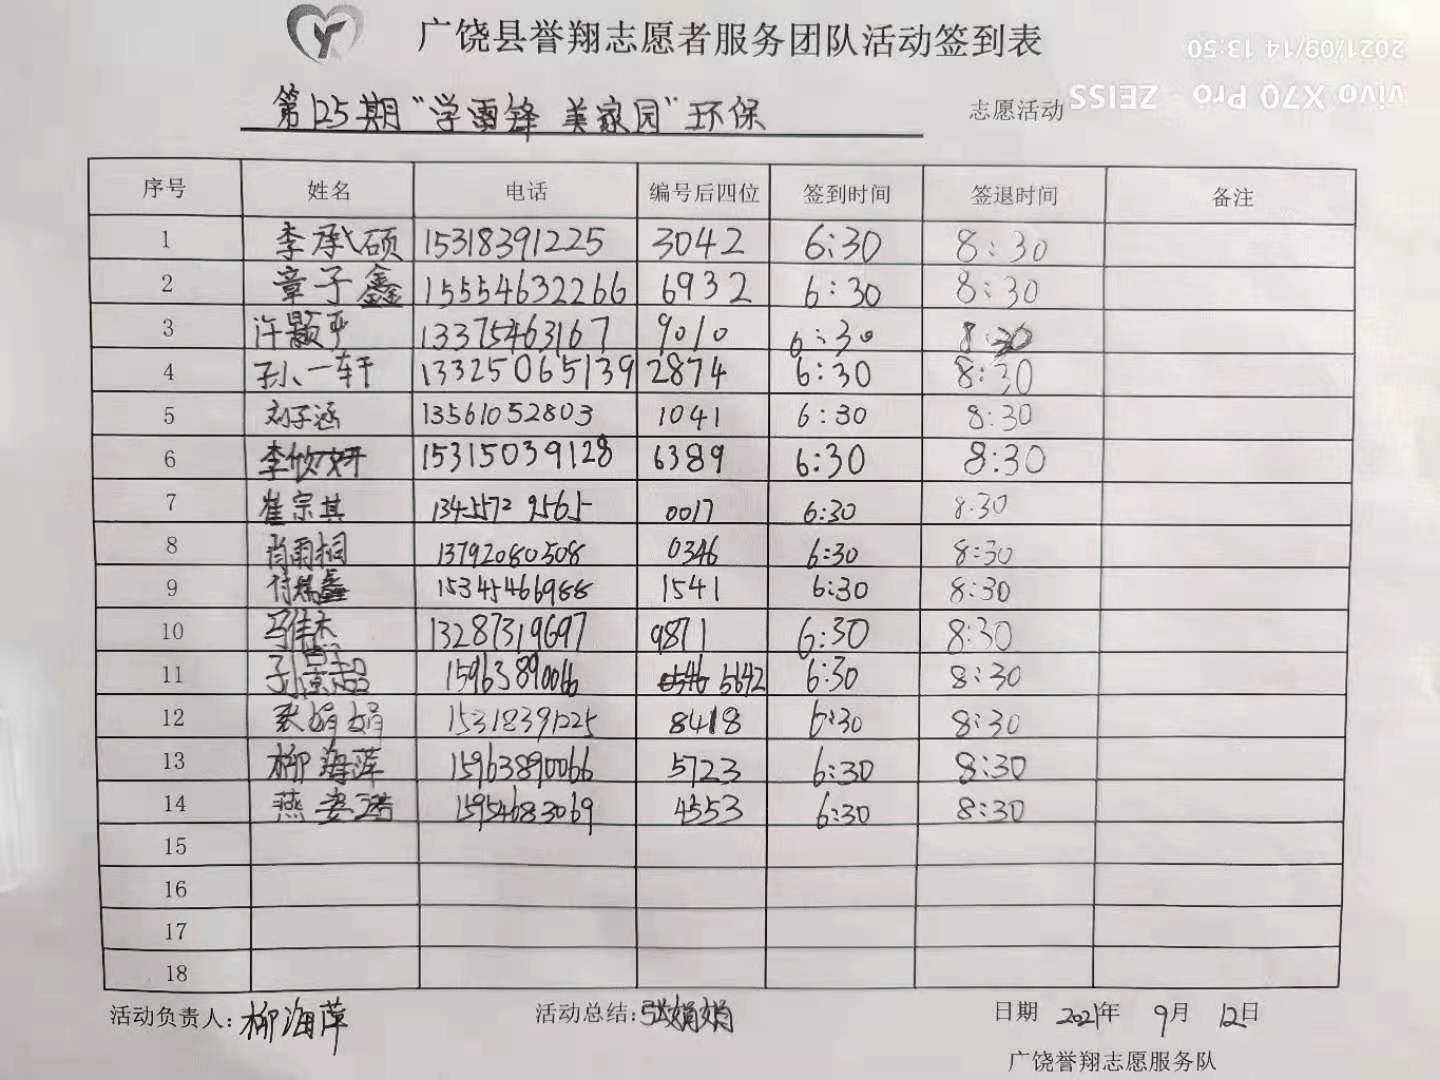 广饶县誉翔志愿者服务团队活动签到表
2021/09/14 13:50
vivo X70 Pro · ZEISS
第125期“学雷锋 美家园”环保 志愿活动
序号 姓名 电话 编号后四位 签到时间 签退时间 备注
1 李承硕 15318391225 3042 6:30 8:30
2 章子鑫 15554632266 6932 6:30 8:30
3 许颢严 13375463167 9010 6:30 8:30
4 孙一轩 13325065139 2874 6:30 8:30
5 刘子涵 13561052803 1041 6:30 8:30
6 李攸妍 15315039128 6389 6:30 8:30
7 崔宗其 13455729565 0017 6:30 8.30
8 肖雨桐 13792080508 0346 6:30 8:30
9 付鑫 15345466988 1541 6:30 8:30
10 马佳木 13287319697 9871 6:30 8:30
11 孙景超 15963890066 5642 6:30 8:30
12 张娟娟 15318391225 8418 6:30 8:30
13 柳海萍 15963890066 5723 6:30 8:30
14 燕姿诺 15954683069 4553 6:30 8:30
15
16
17
18
活动负责人:柳海萍 活动总结:张娟娟 日期 2021年 9月 12日
广饶誉翔志愿服务队